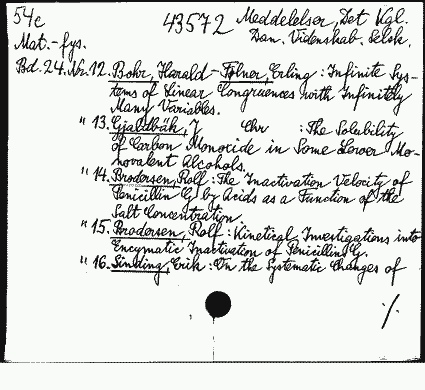 54c 43572 Meddelelser, Det Kgl.
Mat.-fys. Dan. Videnskab. Selsk.
Bd. 24. Nr. 12. Bohr, Harald - Følner, Erling : Infinite Sys-
tems of Linear Congruences with Infinitely
Many Variables.
" 13. Gjaldbäk, J Chr : The Solubility
of Carbon Monocide in Some Lower Mo-
novalent Alcohols.
" 14. Brodersen, Rolf : The Inactivation Velocity of
Penicillin G by Acids as a Function of the
Salt Concentration.
" 15. Brodersen, Rolf : Kinetical Investigations into
Encymatic Inactivation of Penicillin G.
" 16. Sinding, Erik : On the Systematic Changes of
./.